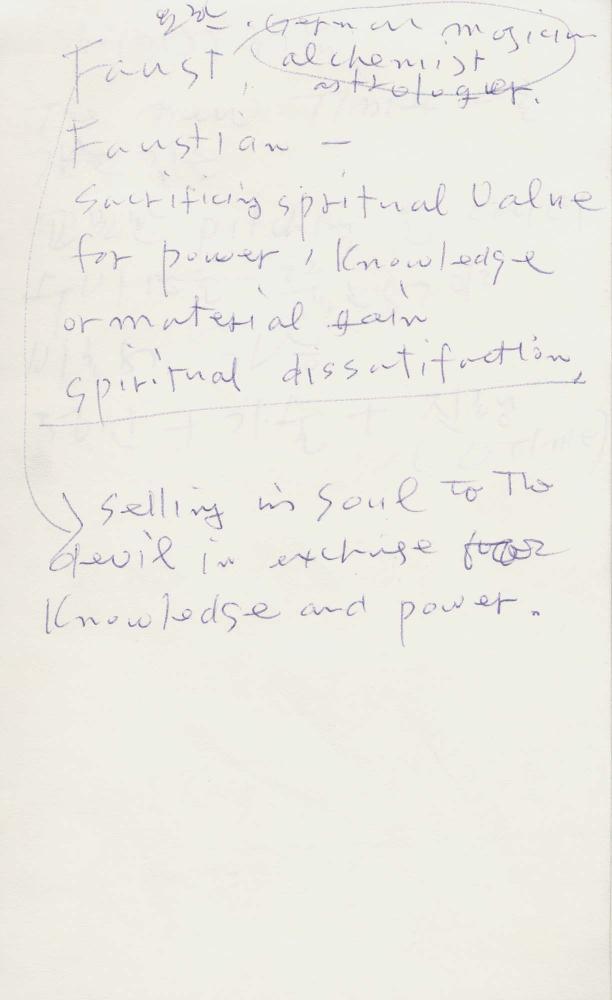 . German magician
Faust, alchemist
astrologer.
Faustian —
Sacrificing spritual Value
for power, Knowledge
or material gain
spiritual dissatifaction,
selling his Soul to The
devil in exchange for
Knowledge and power.